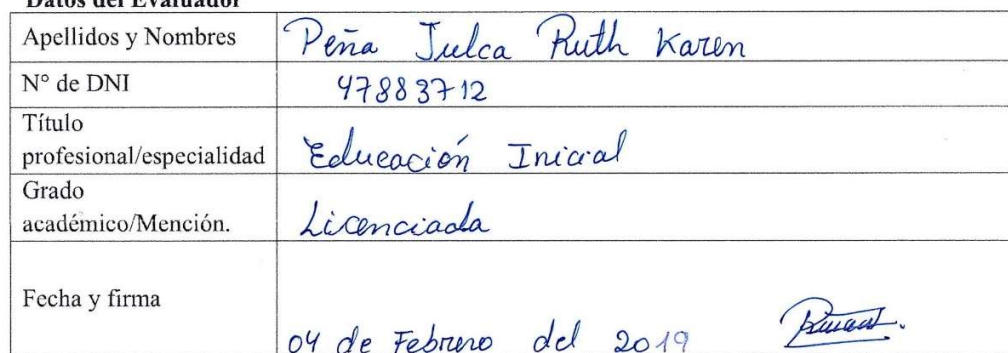 Datos del Evaluador
Apellidos y Nombres Peña Julca Ruth Karen
N° de DNI 47883712
Título
profesional/especialidad Educación Inicial
Grado
académico/Mención. Licenciada
Fecha y firma
04 de Febrero del 2019